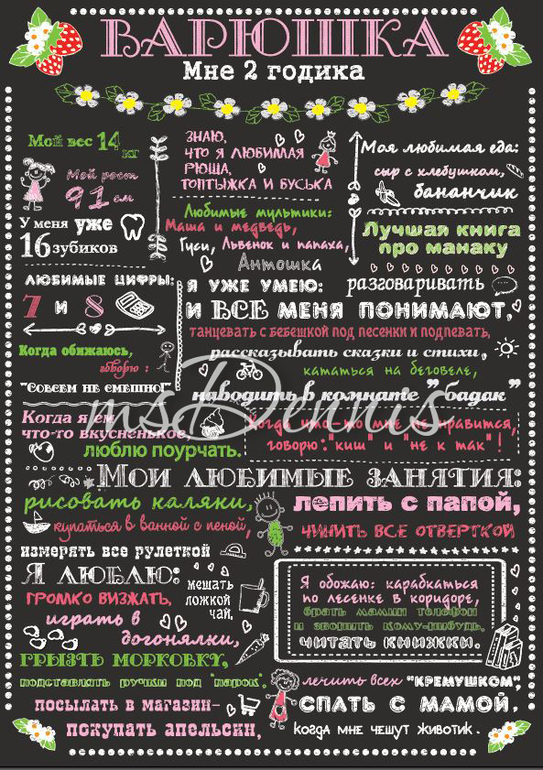 ВАРЮШКА
Мне 2 годика
Мой вес 14 кг
Мой рост
91 см
У меня уже
16 зубиков
ЗНАЮ,
ЧТО Я ЛЮБИМАЯ
РЮША,
ТОПТЫЖКА И БУСЬКА
Любимые мультики:
Маша и медведь,
Гуси, Львенок и папаха,
Антошка
Моя любимая еда:
сыр с хлебушком,
бананчик
Лучшая книга
про манаку
ЛЮБИМЫЕ ЦИФРЫ:
7 и 8
Когда обижаюсь,
говорю:
"Совсем не смешно!"
Я УЖЕ УМЕЮ: разговаривать
И ВСЕ МЕНЯ ПОНИМАЮТ,
ТАНЦЕВАТЬ С БЕБЕШКОЙ ПОД ПЕСЕНКИ И ПОДПЕВАТЬ,
рассказывать сказки и стихи,
кататься на беговеле,
наводить в комнате "бадак"
Когда я ем
что-то вкусненькое,
люблю поурчать.
Когда что-то мне не нравится,
говорю: "киш" и "не к так"!
msDennis
Мои любимые занятия:
рисовать каляки,
лепить с папой,
купаться в ванной с пеной,
ЧИНИТЬ ВСЕ ОТВЕРТКОЙ
измерять все рулеткой
Я люблю:
громко визжать,
мешать
ложкой
чай,
играть в
догонялки,
ГРЫЗТЬ МОРКОВКУ,
подставлять ручки под "парок",
посылать в магазин-
покупать апельсин,
Я обожаю: карабкаться
по лесенке в коридоре,
брать мамин телефон
и звонить кому-нибудь,
читать книжки.
лечить всех "КРЕМУШКОМ",
СПАТЬ С МАМОЙ,
когда мне чешут животик.